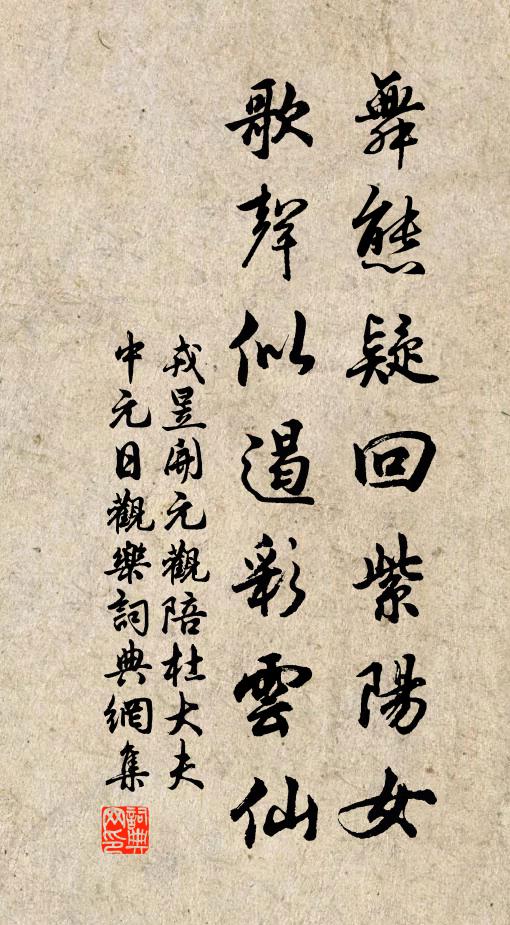 舞態疑回紫陽女
歌聲似遏彩雲仙
戎昱開元觀陪杜大夫
中元日觀樂詞典網集
詞典
网印